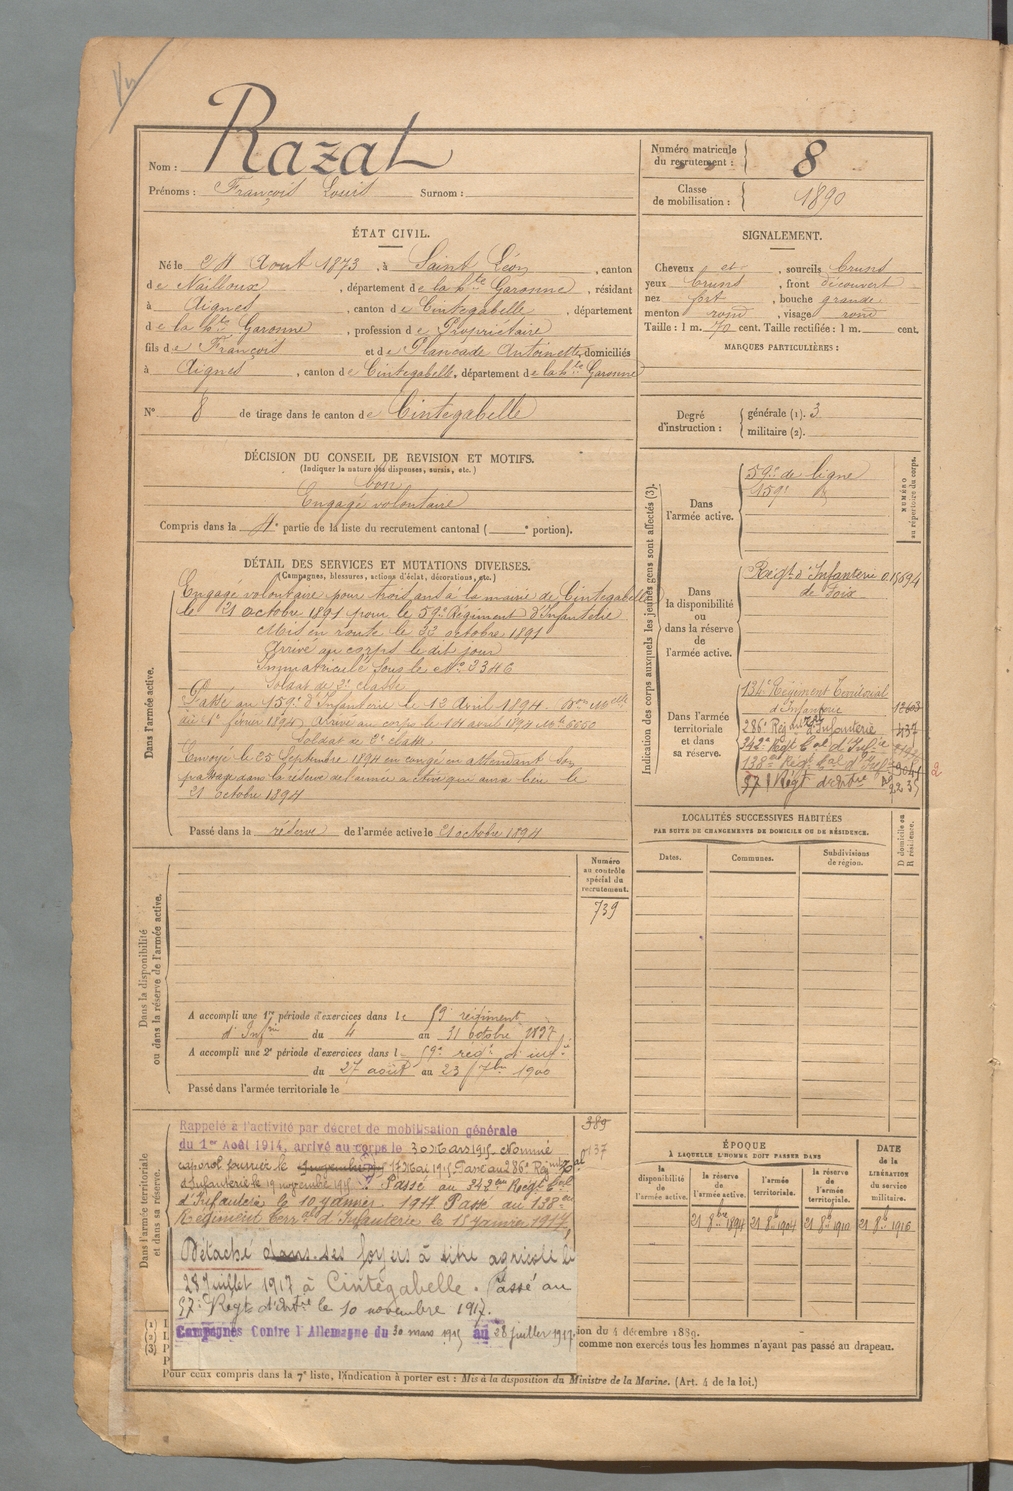 Nom : Razat
Prénoms : François Louis Surnom :
Numéro matricule du recrutement : 8
Classe de mobilisation : 1890
ÉTAT CIVIL.
Né le 24 Aout 1873, à Saint Léon, canton
de Nailloux, département de la hte Garonne, résidant
à Aignes, canton de Cintegabelle, département
de la hte Garonne, profession de Propriétaire
fils de François et de Plancade Antoinette, domiciliés
à Aignes, canton de Cintegabelle, département de la hte Garonne
N° 8 de tirage dans le canton de Cintegabelle
SIGNALEMENT.
Cheveux et, sourcils bruns
yeux bruns, front découvert
nez fort, bouche grande
menton rond, visage rond
Taille : 1 m. 70 cent. Taille rectifiée : 1 m. cent.
MARQUES PARTICULIÈRES :
Degré d'instruction : générale (1). 3
militaire (2).
DÉCISION DU CONSEIL DE REVISION ET MOTIFS.
(Indiquer la nature des dispenses, sursis, etc.)
bon
Engagé volontaire
Compris dans la 4e partie de la liste du recrutement cantonal ( e portion).
DÉTAIL DES SERVICES ET MUTATIONS DIVERSES.
(Campagnes, blessures, actions d'éclat, décorations, etc.)
Dans l'armée active.
Engagé volontaire pour trois ans à la mairie de Cintegabelle
le 21 octobre 1891 pour le 59e Régiment d'Infanterie
Mis en route le 22 octobre 1891
Arrivé au corps le dit jour
Immatriculé sous le No 3346
Soldat de 2e classe
Passé au 159e d'Infanterie le 12 Avril 1894.
du 1er février 1894) Arrivé au corps le 14 avril 1894
Soldat de 2e classe
Envoyé le 25 Septembre 1894 en congé en attendant son
passage dans la réserve de l'armée active qui aura lieu le
21 octobre 1894
Passé dans la réserve de l'armée active le 21 octobre 1894
Indication des corps auxquels les jeunes gens sont affectés (3).
NUMÉRO au répertoire du corps.
Dans l'armée active.
59e de ligne
159e
Dans la disponibilité ou dans la réserve de l'armée active.
Régt d'Infanterie
de Foix
Dans l'armée territoriale et dans sa réserve.
134e Régiment Territorial
d'Infanterie
286e Régt d'Infanterie 437
342e Régt
138e Régt
57e Régt d'Artrie
LOCALITÉS SUCCESSIVES HABITÉES
PAR SUITE DE CHANGEMENTS DE DOMICILE OU DE RÉSIDENCE.
Dates. Communes. Subdivisions de région.
D domicile ou R résidence.
Dans la disponibilité ou dans la réserve de l'armée active.
Numéro au contrôle spécial du recrutement.
739
A accompli une 1re période d'exercices dans le 59e régiment
d'Infrie du 4 au 31 octobre 1897
A accompli une 2e période d'exercices dans le 59e régt d'infie
du 27 août au 23 7bre 1900
Passé dans l'armée territoriale le
Dans l'armée territoriale et dans sa réserve.
389
Rappelé à l'activité par décret de mobilisation générale
du 1er Août 1914, arrivé au corps le 30 Mars 1915. Nommé
caporal fourrier le 17 Mai 1915. Passé au 286e Régiment
d'Infanterie le 19 novembre 1915. Passé au 342e Régt
d'Infanterie le 10 Janvier 1917 Passé au 138e
Régiment Terr al d'Infanterie le 15 Janvier 1917,
Détaché dans ses foyers à titre agricole le
28 Juillet 1917 à Cintegabelle. Passé au
57e Régt d'Artrie le 10 novembre 1917.
Campagnes Contre l'Allemagne du 30 mars 1915 au 28 juillet 1917.
ÉPOQUE
À LAQUELLE L'HOMME DOIT PASSER DANS
la disponibilité de l'armée active. la réserve de l'armée active. l'armée territoriale. la réserve de l'armée territoriale.
DATE de la LIBÉRATION du service militaire.
21 8bre 1894 21 8b 1904 21 8b 1910 21 8b 1916
(1)
(2)
(3)
ion du 4 décembre 1889.
comme non exercés tous les hommes n'ayant pas passé au drapeau.
Pour ceux compris dans la 7e liste, l'indication à porter est : Mis à la disposition du Ministre de la Marine. (Art. 4 de la loi.)